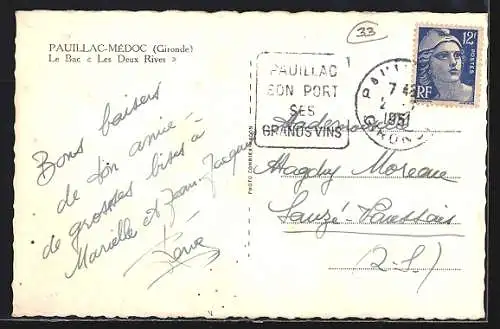 PAUILLAC-MÉDOC (Gironde)
Le Bac « Les Deux Rives »
33
PAUILLAC
SON PORT
SES
GRANDS VINS
7
2
1951
GIRONDE
12F
POSTES
RF
Bons baisers
de ton amie
de grosses bises à
Marielle et Jean-Jacques
PHOTO COMBIER MACON
Mademoiselle
Magdy Moreau
Sauzé-Vaussais
(D.S.)